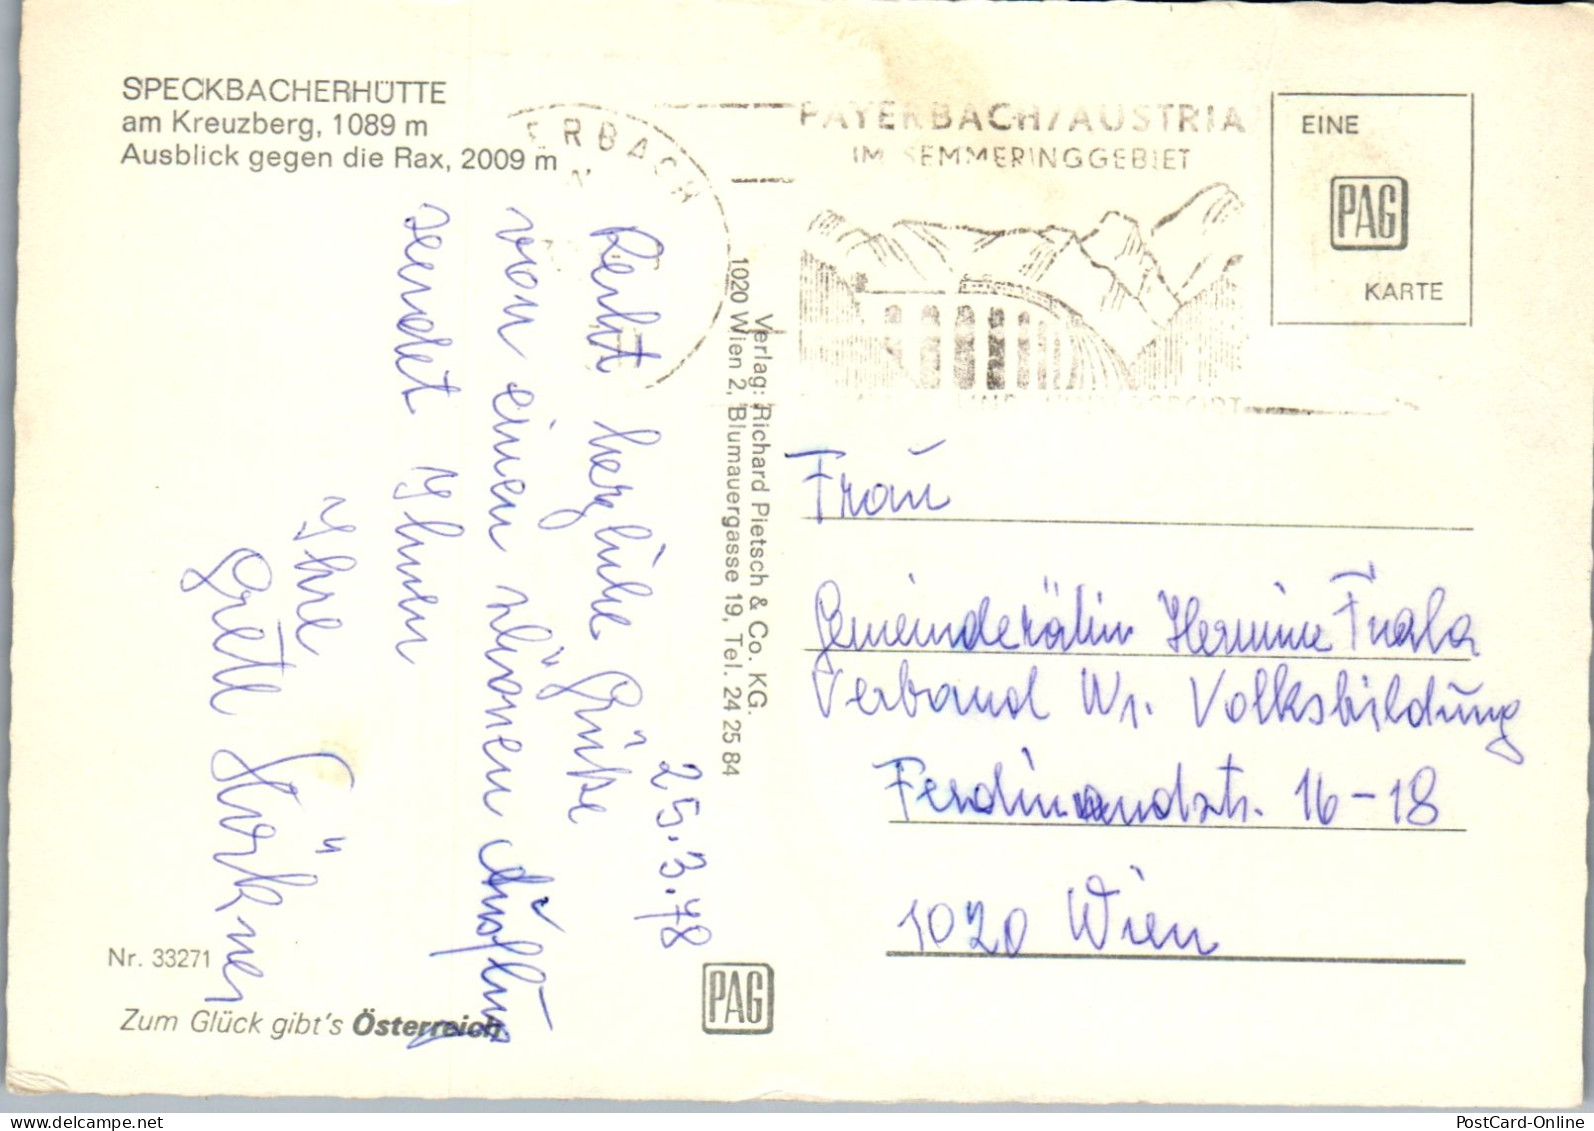 SPECKBACHERHÜTTE
am Kreuzberg, 1089 m
Ausblick gegen die Rax, 2009 m
ERBACH
PAYERBACH/AUSTRIA
IM SEMMERINGGEBIET
EINE
PAG
KARTE
25.3.78
Recht herzliche Grüße
von einen schönen Ausflug
sendet Ihnen
Ihre
Grete
Verlag: Richard Pietsch & Co. KG.
1020 Wien 2, Blumauergasse 19, Tel. 24 25 84
Frau
Gemeinderätin Hermine Fiala
Verband Wr. Volksbildung
Ferdinandstr. 16-18
1020 Wien
Nr. 33271
Zum Glück gibt's Österreich
PAG
delcampe.net
PostCard-Online